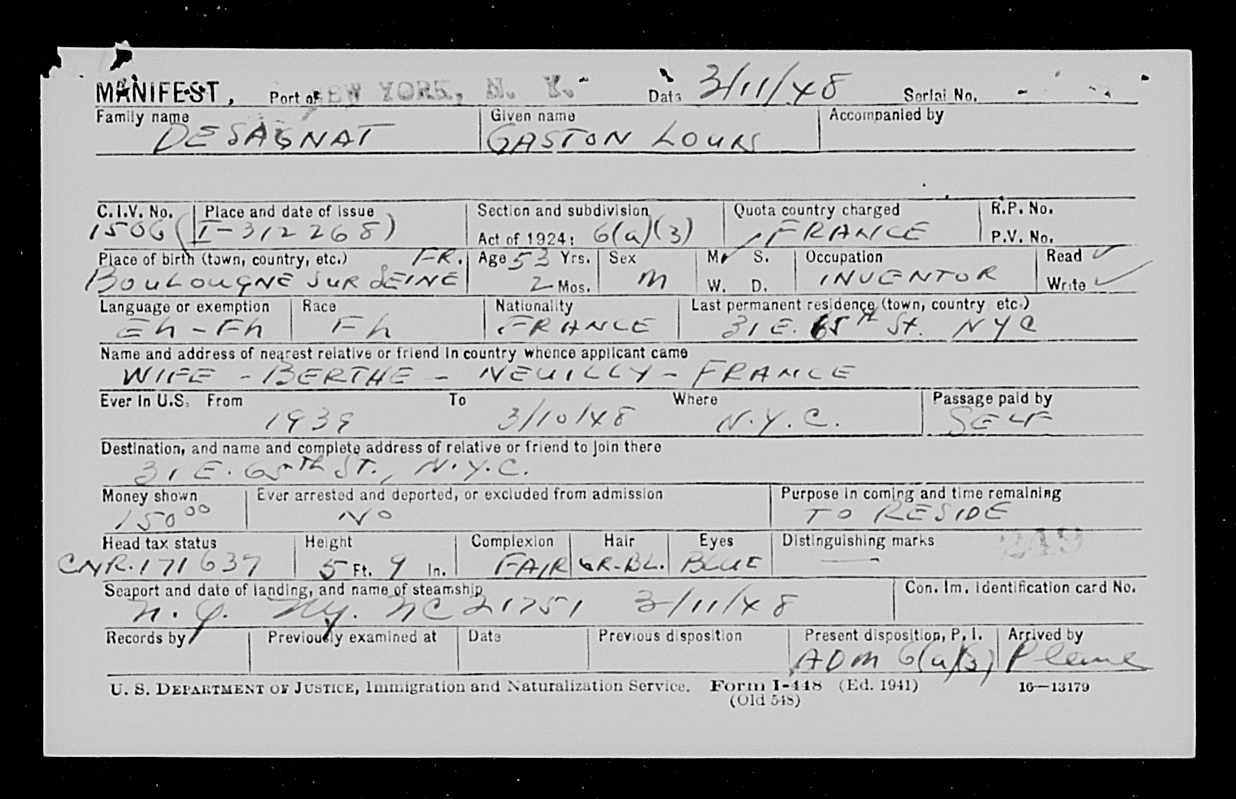 MANIFEST, Port of NEW YORK, N. Y. Date 3/11/48 Serial No. -
Family name Given name Accompanied by
DESAGNAT GASTON LOUIS
C.I.V. No. Place and date of issue Section and subdivision Quota country charged R.P. No.
1506 (I-312268) Act of 1924: 6(a)(3) FRANCE P.V. No.
Place of birth (town, country, etc.) FR. Age 53 Yrs. Sex M. S. Occupation Read ✓
BOULOUGNE SUR SEINE 2 Mos. M W. D. INVENTOR Write ✓
Language or exemption Race Nationality Last permanent residence (town, country etc.)
Eh - Fh Fh FRANCE 31 E. 65th St. NYC
Name and address of nearest relative or friend in country whence applicant came
WIFE - BERTHE - NEUILLY - FRANCE
Ever in U.S. From To Where Passage paid by
1939 3/10/48 N.Y.C. SELF
Destination, and name and complete address of relative or friend to join there
31 E. 65th ST., N.Y.C.
Money shown Ever arrested and deported, or excluded from admission Purpose in coming and time remaining
150 00 NO TO RESIDE
Head tax status Height Complexion Hair Eyes Distinguishing marks 249
CNR. 171637 5 Ft. 9 In. FAIR GR-BL. BLUE —
Seaport and date of landing, and name of steamship Con. Im. Identification card No.
N.Y. NY. NC 21751 3/11/48
Records by Previously examined at Date Previous disposition Present disposition, P. I. Arrived by
ADM 6(a)(3) Plane
U. S. DEPARTMENT OF JUSTICE, Immigration and Naturalization Service. Form I-448 (Ed. 1941) 16—13179
(Old 548)